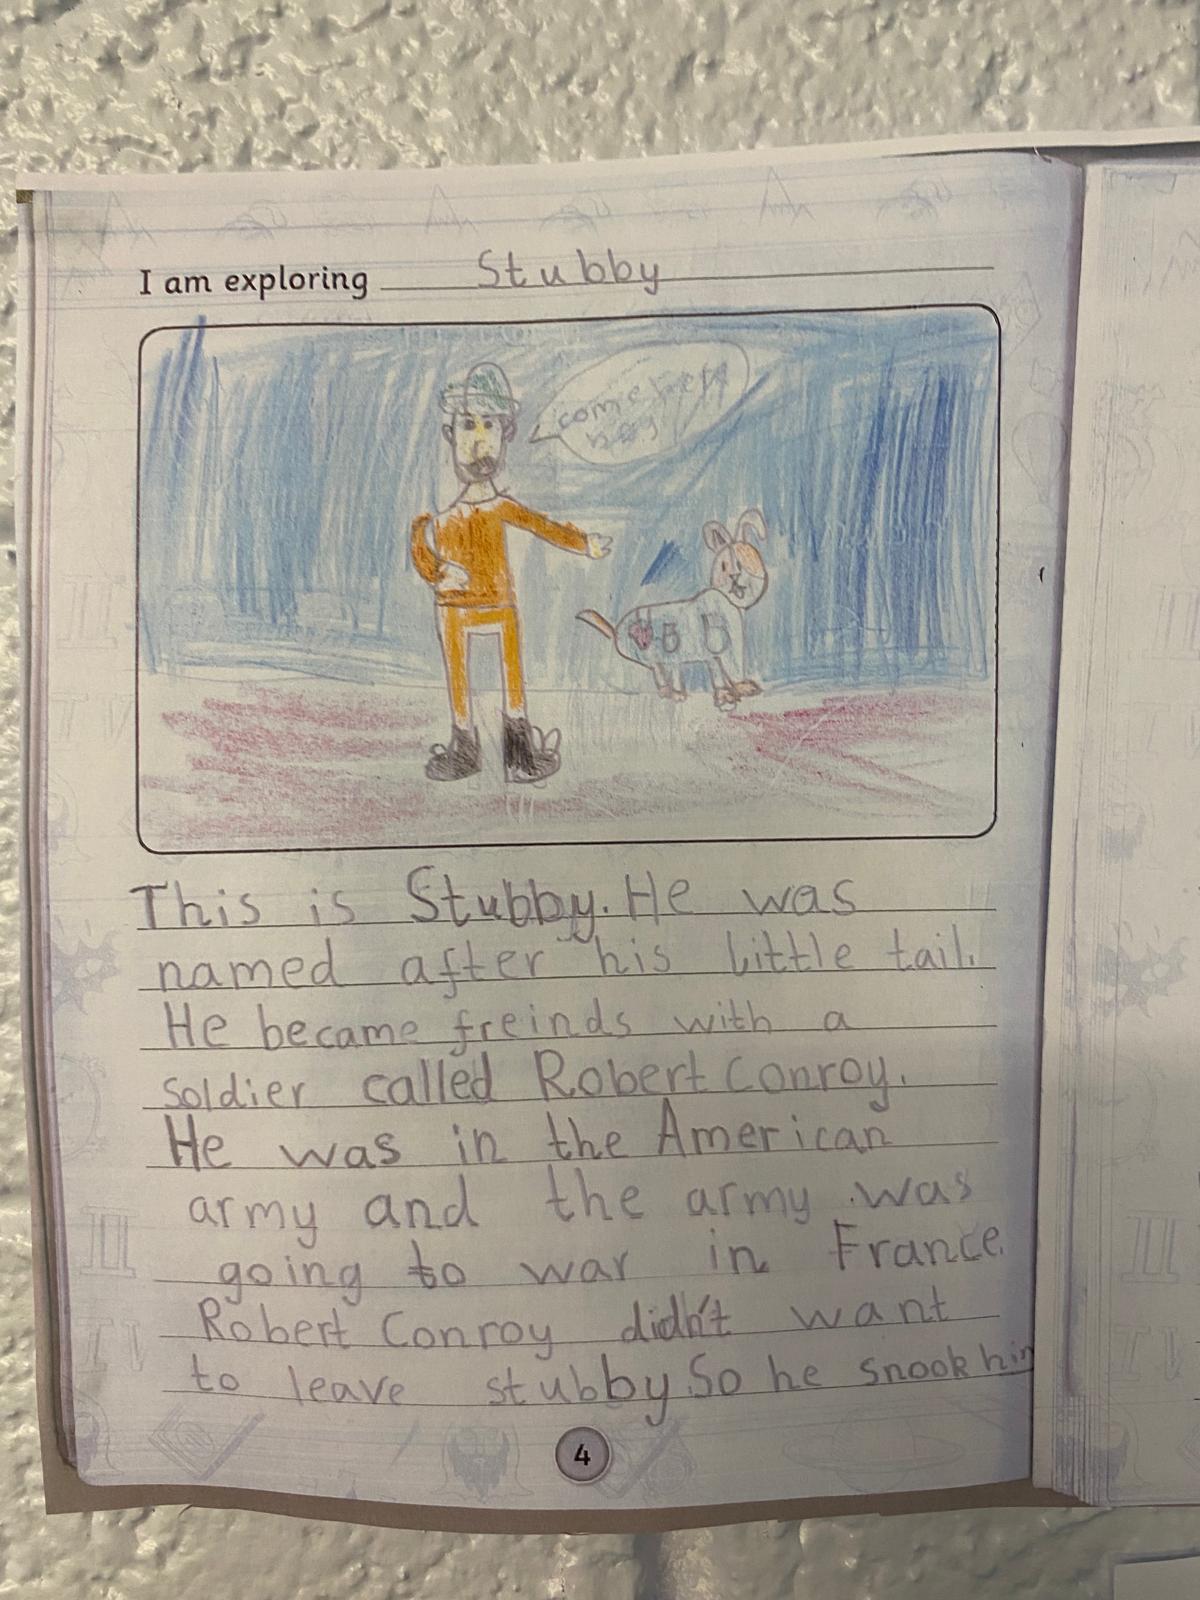 I am exploring Stubby
come here
boy
This is Stubby. He was
named after his little tail.
He became freinds with a
soldier called Robert Conroy.
He was in the American
army and the army was
going to war in France.
Robert Conroy didn't want
to leave stubby. So he snook him
4